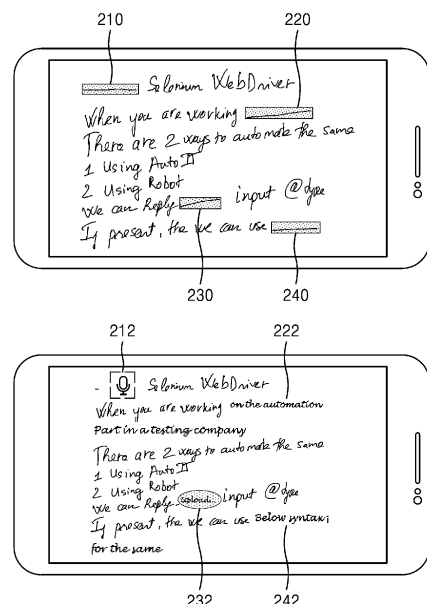 210 220
Selenium WebDriver
When you are working
There are 2 ways to automate the same
1 Using Auto IT
2 Using Robot
We can Reply input @type
If present, the we can use
230 240
212 222
- Selenium WebDriver
When you are working on the automation
Part in a testing company
There are 2 ways to automate the same
1 Using Auto IT
2 Using Robot
We can Reply upload.. input @type
If present, the we can use Below syntax;
for the same
232 242